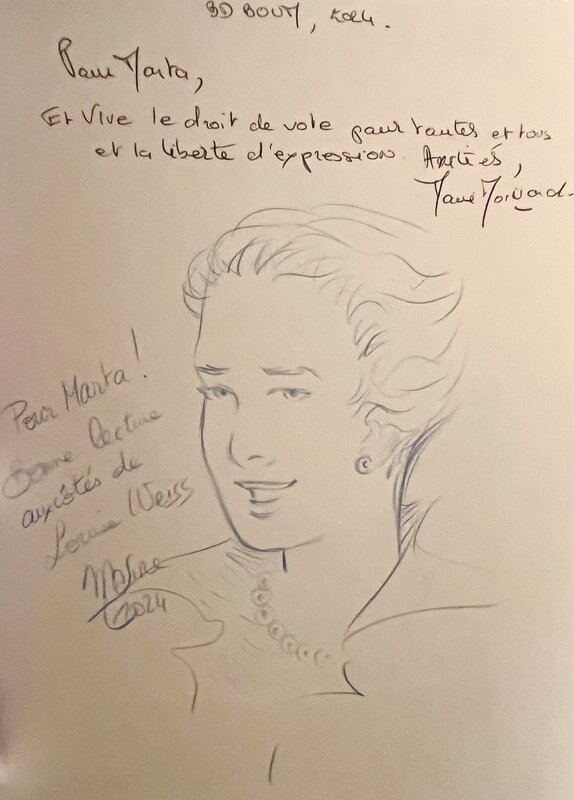 BD BOUM, 2024.
Pour Marta,
Et Vive le droit de vote pour toutes et tous
et la liberté d'expression. Amitiés,
Pour Marta!
Bonne lecture
aux côtés de
Louise Weiss
2024